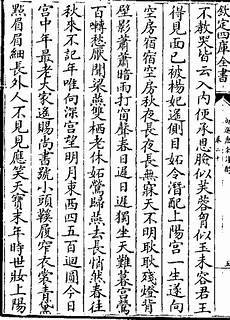 欽定四庫全書
不教哭皆云入內便承恩臉似芙蓉胷似玉未容君王
得見面已被楊妃遥側目妬令潛配上陽宮一生遂向
空房宿宿空房秋夜長夜長無寐天不明耿耿殘燈背
壁影蕭蕭暗雨打窗聲春日遲日遲獨坐天難暮宮鶯
百囀愁厭聞梁燕雙栖老休妬鶯歸燕去長悄然春往
秋來不記年唯向深宮望明月東西四五百迴圓今日
宮中年最老大家遥賜尚書號小頭鞵履窄衣裳青黛
點眉眉細長外人不見見應笑天寶末年時世妝上陽